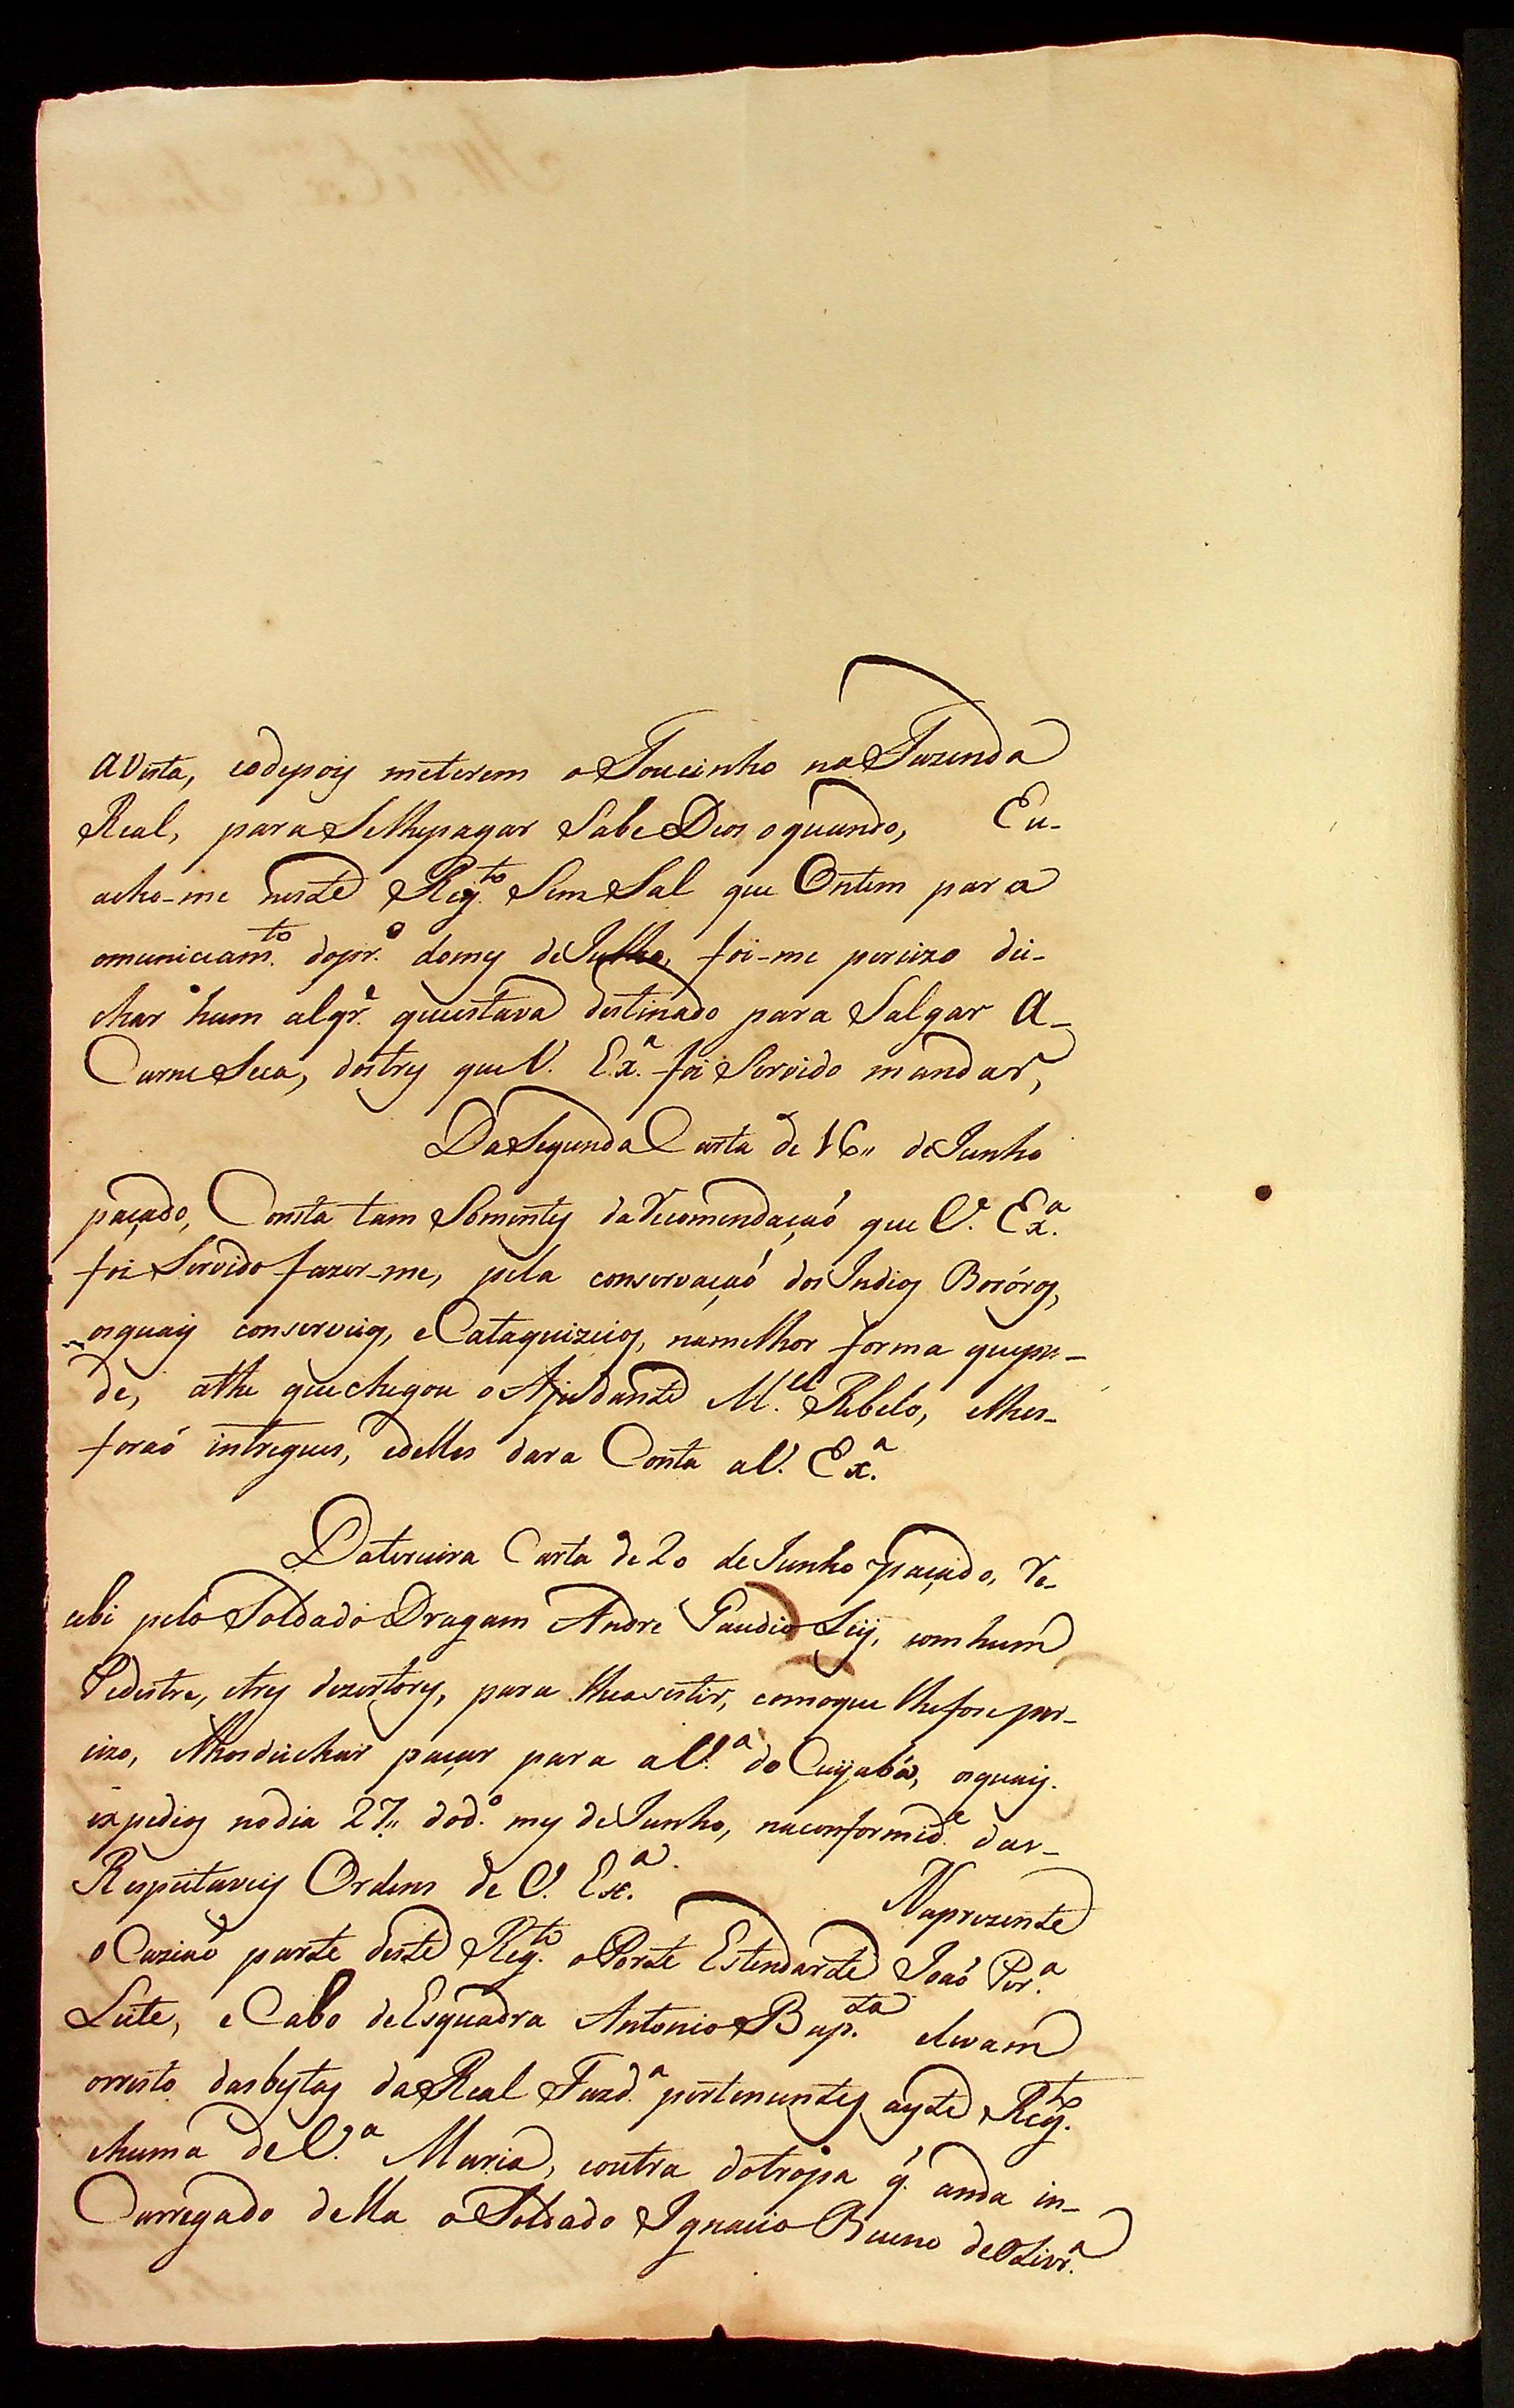 avista, eodepois meterem o Toucinho na Fazenda
Real, para Selhepagar Sabe Deos oquando, Eu-
acho-me neste Reg.to Sem Sal que Ontem para
omuniciam.to dopr.o domes de Julho, foi-me percizo dei-
char hum alqr.e queestava destinado para Salgar a-
Carne Seca, destes que V. Ex.a foi Servido mandar,
Da Segunda Carta de 16,, de Junho
paçado, Consta tam Somentes da recomendaçaó que V. Ex.a
foi Servido fazer-me, pela conservaçaó dos Indios Boróros,
osquais conserveios, e Cataquizeios, namelhor forma quepu-
de, athe que chegou o Ajudante M.el Rebelo, elhes-
foraó intregues, edelles dara Conta a V. Ex.a
Daterceira Carta de 20 de Junho paçado, re-
cebi pelo Soldado Dragam Andre Gaudie Leij, com hum
Pedestre, etres dezertores, para lheasistir, comoque lhefose per-
cizo, elhosdeichar paçar para a V.a do Cuijabá, osquais.
expedios nodia 27,, dod.o mes de Junho, naconformid.e das-
Respeitaveis Ordens de V. Ex.a Naprezente
oCaziaó parte deste Reg.to o Porte Estendarte Joaó Per.a
Leite, e Cabo de Esquadra Antonio Bap.ta elevam
orresto dasbestas da Real Fazd.a pertencentes aeste Reg.to
ehuma de V.a Maria, eoutra dotropa q' anda in-
Carregado della o Soldado Ignacio Bueno de Olivr.a